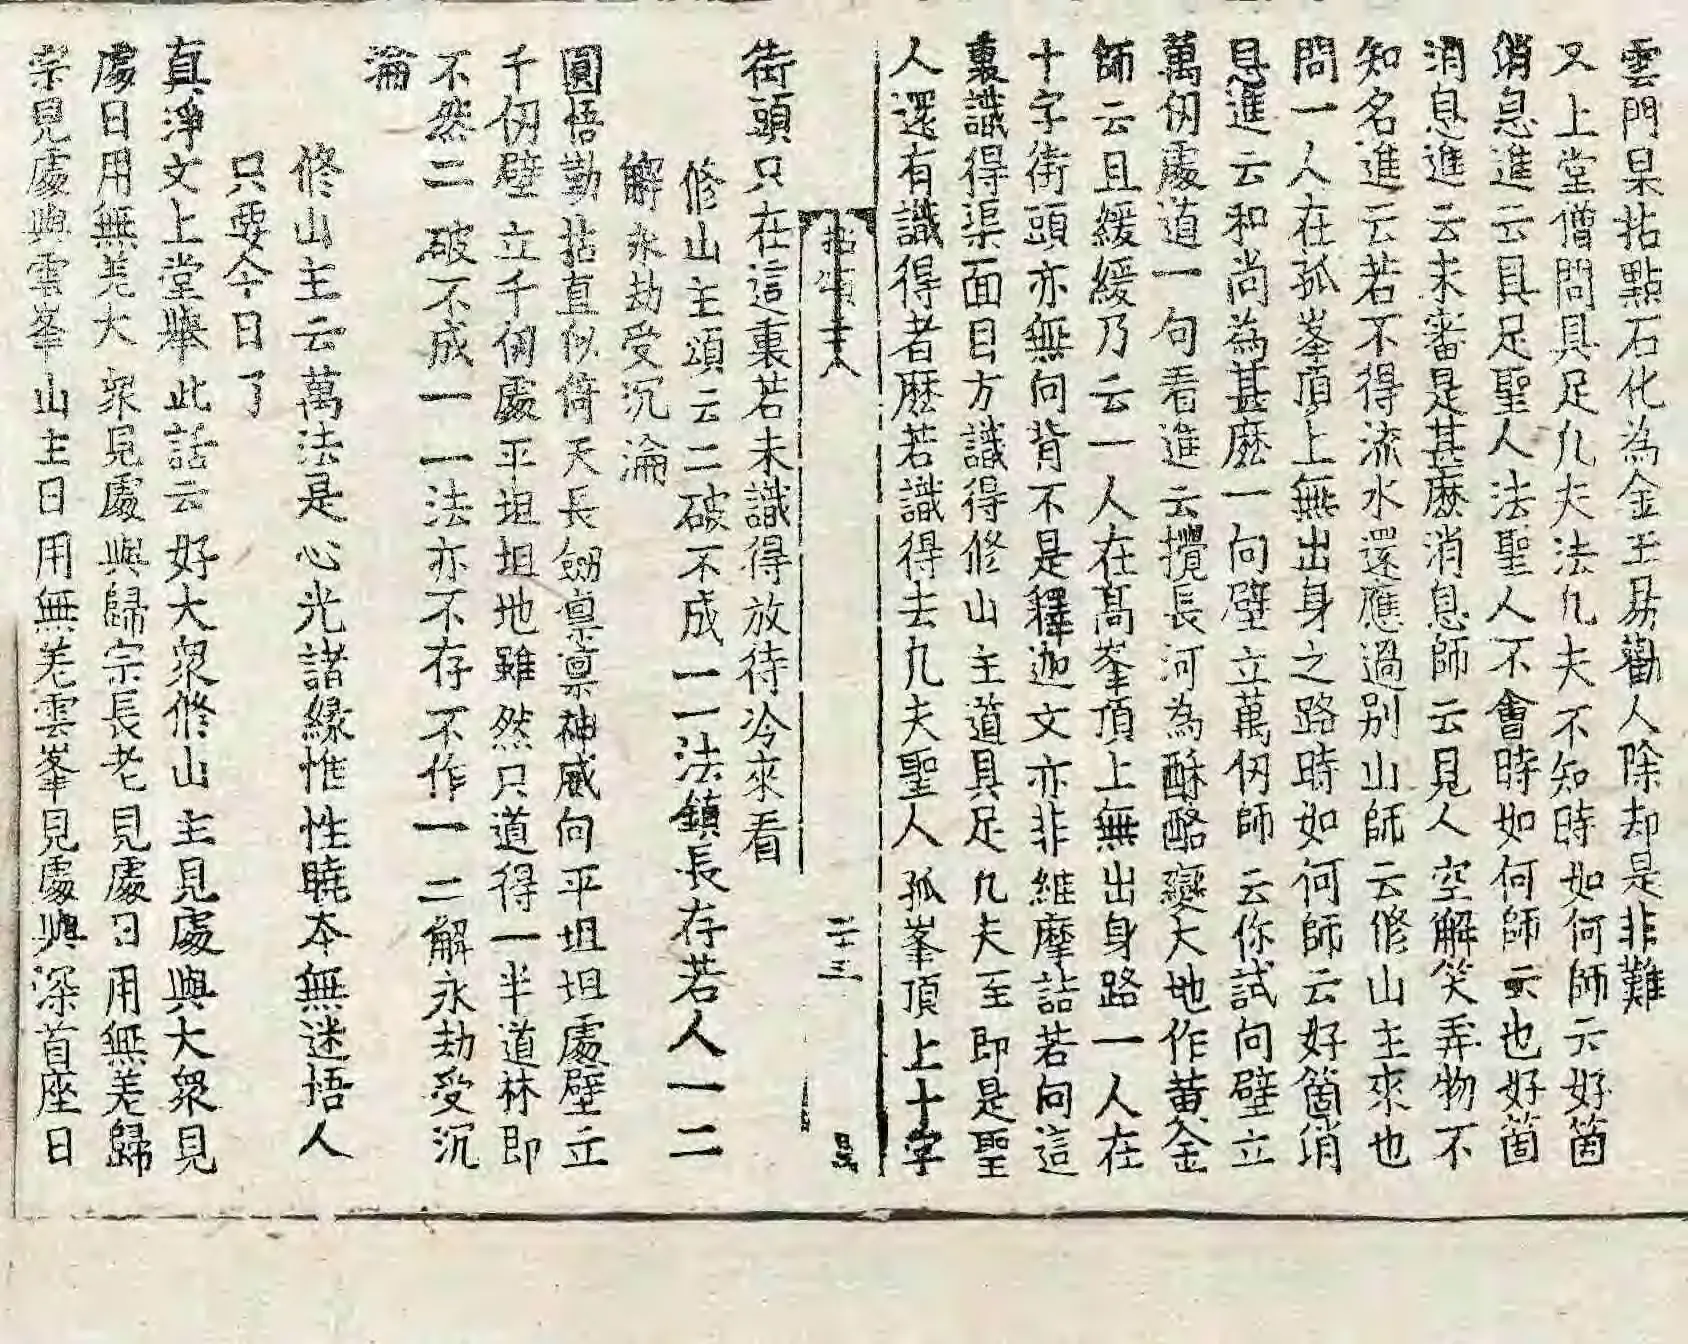 雲門杲拈點石化為金玉易勸人除却是非難
又上堂僧問具足凡夫法凡夫不知時如何師云好箇
消息進云具足聖人法聖人不會時如何師云也好箇
消息進云未審是甚麽消息師云見人空解笑弄物不
知名進云若不得流水還應過别山師云修山主來也
問一人在孤峯頂上無出身之路時如何師云好箇消
息進云和尚為甚麽一向壁立萬仞師云你試向壁立
萬仞處道一句看進云攪長河為酥酪變大地作黄金
師云且緩緩乃云一人在髙峯頂上無出身路一人在
十字街頭亦無向背不是釋迦文亦非維摩詰若向這
裏識得渠面目方識得修山主道具足凡夫至即是聖
人還有識得者麽若識得去凡夫聖人孤峯頂上十字
拈頌十八
二十三
街頭只在這裏若未識得放待冷來看
修山主頌云二破不成一一法鎮長存若人一二
解永劫受沉淪
圓悟勤拈直似倚天長劒凛凛神威向平坦坦處壁立
千仞壁立千仞處平坦坦地雖然只道得一半道林即
不然二破不成一一法亦不存不作一二解永劫受沉
淪
修山主云萬法是心光諸緣惟性曉本無迷悟人
只要今日了
真淨文上堂舉此話云好大衆修山主見處與大衆見
處日用無差大衆見處與歸宗長老見處日用無差歸
宗見處與雲峯山主日用無差雲峯見處與深首座日